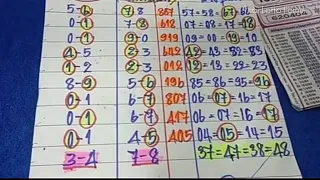 5-6 7-8 867 57=58=67=66
0-1 7-8 618 07=08=17=18
0-1 9-0 919 09=00=19=10
4-5 2-3 642 42=43=52=53
1-2 2-3 12=13=22=23
8-9 5-6 196 85=86=95=96
0-1 6-7 807 06=07=16=17
0-1 6-7 417 06=07=16=17
0-1 4-5 405 04=05=14=15
3-4 7-8 37=47=38=48